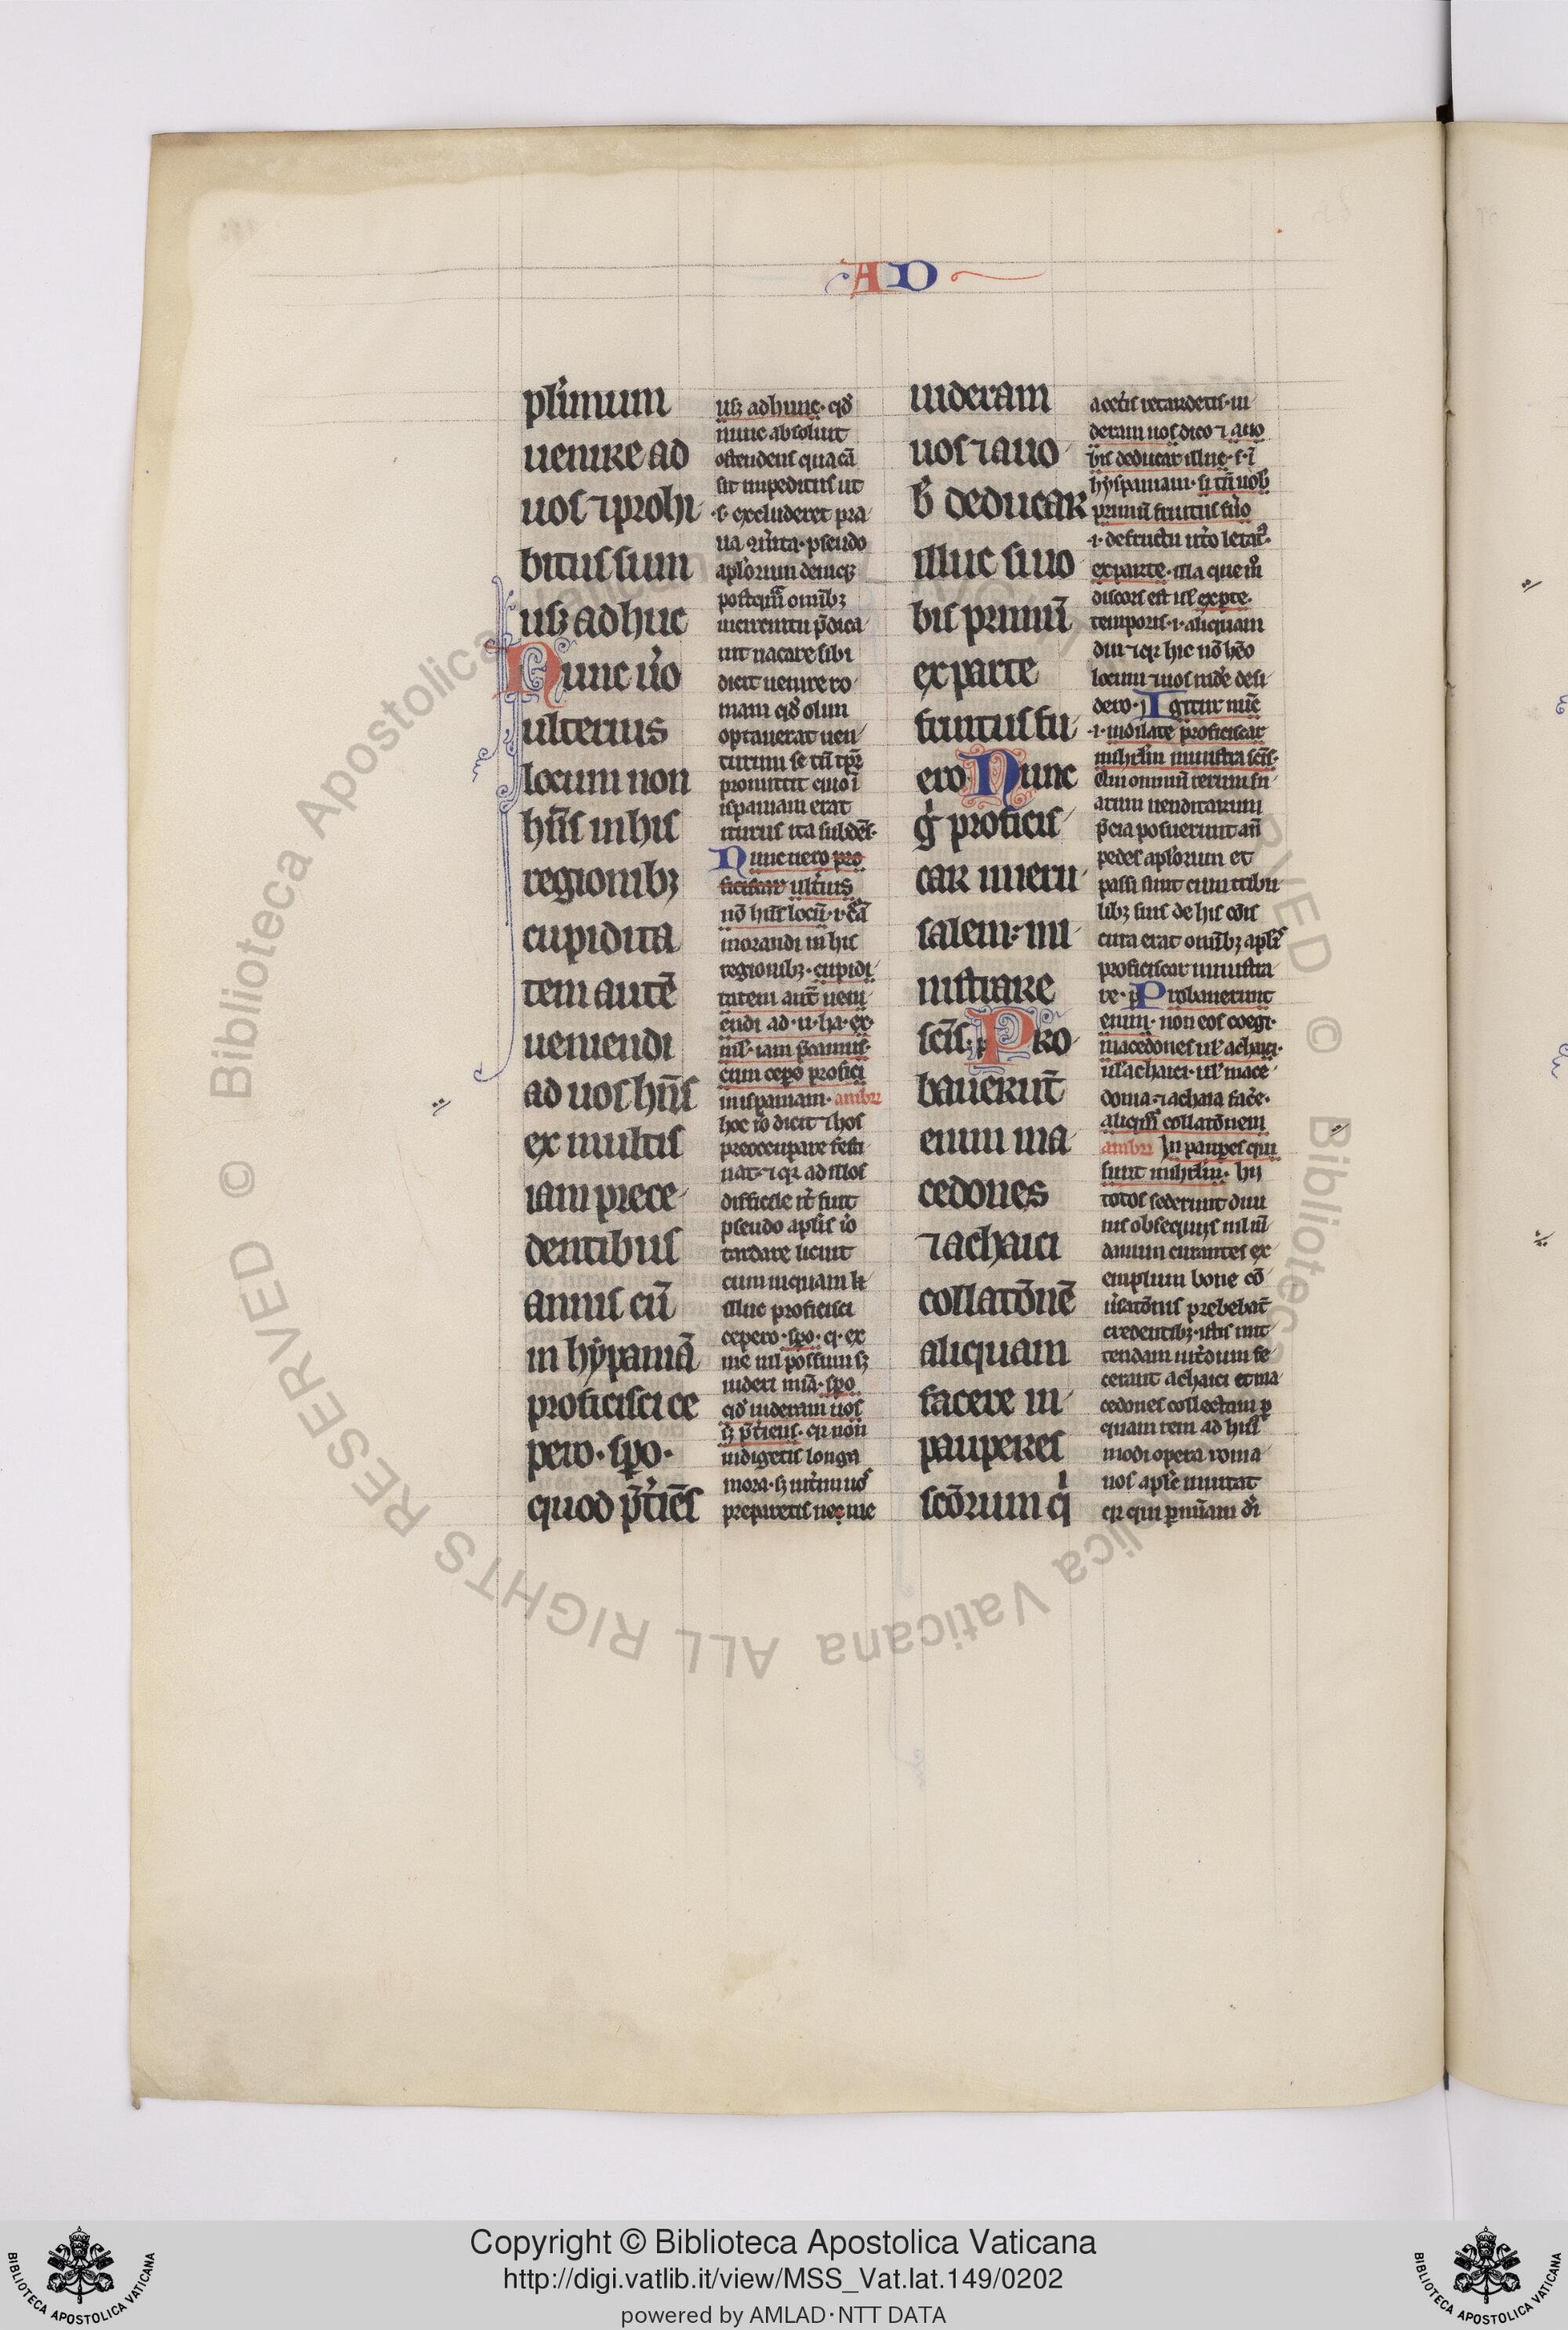 AD
pl'imum
uenire ad
uos ⁊ prohi
bitus sum
usꝫ adhuc
Nunc ũo
ulterius
locum non
hñs in his
regionibꝫ
cupidita
tem autē
ueniendi
ad uos hñs
ex multis
iam prece
dentibus
annis cū
in hẏpaniā
proficisci ce
pero · spo ·
quod p̄t'iēs
usꝫ adhunc · qđ
nunc absoluit
ostendens qua cā
sit impeditus ut
.s. excluderet pra
postq̄m omībꝫ
uit uacare sibi
dicit uenire ro
mam qđ olim
optauerat uen
turum se tñ
promittit cum ī
ispaniam erat
iturus ita subdēs.
Nunc uero pro
ficiscar ult'ius
nō hñs locū .i. cām
morandi in his
regionibꝫ · cupidi
tatem aut̄ ueni
endi ad · u · ha · ex
cum cepo profici
in ispaniam · ambr
hoc iō dicit
preoccupare festi
nat ⁊ qr ad illos
difficile
pseudo apl'is iō
tardare licuit
cum inquam
illuc proficisci
cepero · spo · q · ex
me nil possum sꝫ
spo
qđ uideram uos
qr non
indigetis longa
mora · sꝫ
preparetis nec me
uideram
uos ⁊ a uo
b' deducar
illuc si uo
bis primū
ex parte
fruitus fu
ero Nunc
g° proficis
car iueru
salem: mi
nistrare
scīs; Pro
bauerūt
enim ma
cedones
⁊ achaici
collatōnē
aliquam
facere in
pauperes
scōrum q'
a cet'is retardetis · ui
deram uos dico ⁊ a uo
bis deducar illuc · s · ī
hyspaniam · si tñ uob
primū fruitus fu'o
ex parte
discors est ul' ex p̱te.
temporis · i · aliquam
diu ⁊ qr hic nō hēo
locum ⁊ uos
dero · Igitur nūc
proficiscar
in ihrl'm ministra scīs.
Qui omnium rerum su
arum uenditarum
p̄cia posuerunt añ
pedes apl'orum et
passi sunt cum tribu
libꝫ suis de his
cura erat omībꝫ apl'is
proficiscar ministra
re · Probauerunt
enim · non eos coegi.
macedones ul' achaici.
ul' achaici · ul' mace
donia ⁊ achaia fac'e.
collatōnem
ambr In paup̱es qui
sunt in ihrl'm · hij
totos sederunt diui
nis obsequijs nil
curantes ex
emplum bone cō
u'satōnis prebebāt
credentibꝫ
cerant achaici et ma
cedones collectam
quam rem ad
modi opera roma
nos apl's inuitat
Copyright © Biblioteca Apostolica Vaticana
http://digi.vatlib.it/view/MSS_Vat.lat.149/0202
powered by AMLAD·NTT DATA
Biblioteca Apostolica Vaticana ALL RIGHTS RESERVED ©
BIBLIOTECA APOSTOLICA VATICANA
BIBLIOTECA APOSTOLICA VATICANA